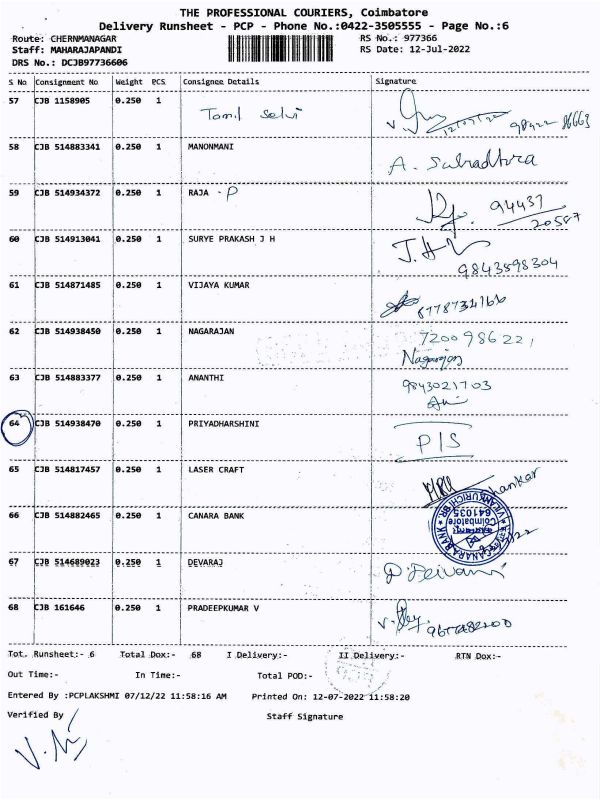 THE PROFESSIONAL COURIERS, Coimbatore
Delivery Runsheet - PCP - Phone No.:0422-3505555 - Page No.:6
Route: CHERNMANAGAR RS No.: 977366
Staff: MAHARAJAPANDI RS Date: 12-Jul-2022
DRS No.: DCJB97736606
S No Consignment No Weight PCS Consignee Details Signature
57 CJB 1158905 0.250 1 Tamil Selvi
58 CJB 514883341 0.250 1 MANONMANI A. Subadhra
59 CJB 514934372 0.250 1 RAJA - P 94437
20587
60 CJB 514913041 0.250 1 SURYE PRAKASH J H J.H
9843598304
61 CJB 514871485 0.250 1 VIJAYA KUMAR
62 CJB 514938450 0.250 1 NAGARAJAN 720098622,
Nagarajan
63 CJB 514883377 0.250 1 ANANTHI 9843021703
64 CJB 514938470 0.250 1 PRIYADHARSHINI P/S
65 CJB 514817457 0.250 1 LASER CRAFT
66 CJB 514882465 0.250 1 CANARA BANK CANARA BANK VILANKURICHI BR. Coimbatore 641035
67 CJB 514689023 0.250 1 DEVARAJ
68 CJB 161646 0.250 1 PRADEEPKUMAR V
Tot. Runsheet:- 6 Total Dox:- 68 I Delivery:- II Delivery:- RTN Dox:-
Out Time:- In Time:- Total POD:-
Entered By :PCPLAKSHMI 07/12/22 11:58:16 AM Printed On: 12-07-2022 11:58:20
Verified By Staff Signature